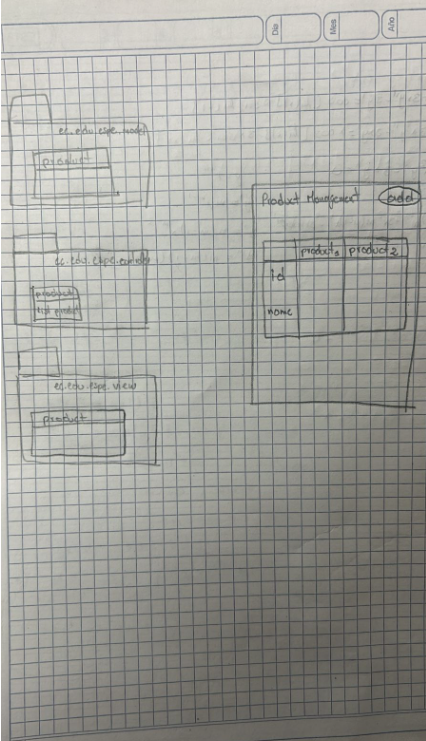 Dia
Mes
Año
ec.edu.espe.model
product
ec.edu.espe.controller
product
list product
ec.edu.espe.view
product
Product Management add
product1 product2
id
name